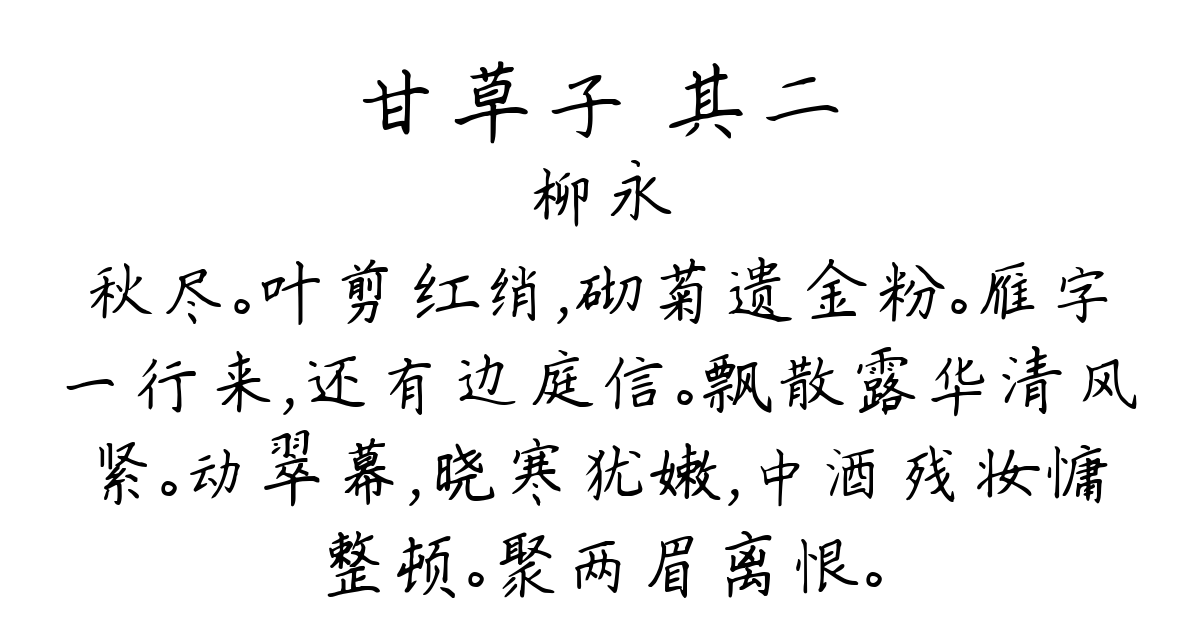 甘草子 其二
柳永
秋尽。叶剪红绡,砌菊遗金粉。雁字
一行来,还有边庭信。飘散露华清风
紧。动翠幕,晓寒犹嫩,中酒残妆慵
整顿。聚两眉离恨。